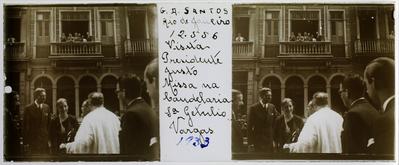 G. A. SANTOS
Rio de Janeiro
12.556
Visita
Presidente
Justo
Missa na
Candelaria
Getulio
Vargas
1933